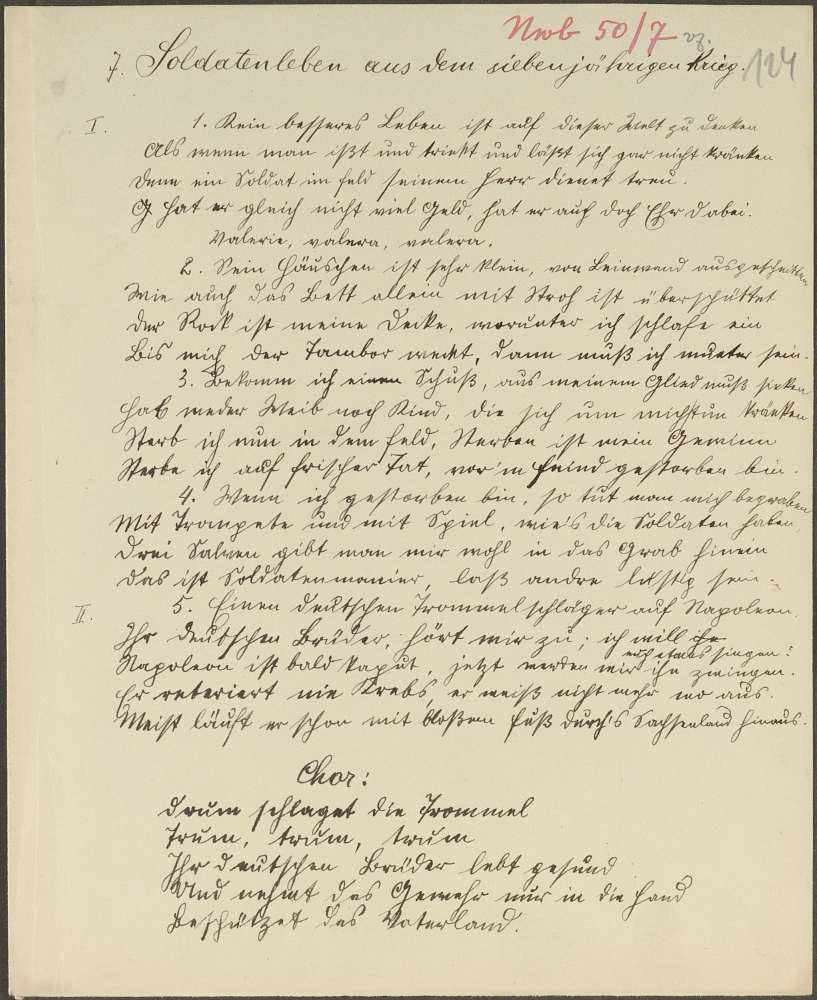 Nwb 50/7
124
7. Soldatenleben aus dem siebenjährigen Krieg.
I. 1. Kein besseres Leben ist auf dieser Welt zu denken
Als wenn man ißt und trinkt und läßt sich gar nicht kränken
Denn ein Soldat im Feld seinem Herr dienet treu.
Hat er gleich nicht viel Geld, hat er auf doch Ehr dabei.
Valerie, valera, valera.
2. Sein Häuschen ist sehr klein, von Leinwand ausgeschnitten
Wie auch das Bett allein mit Stroh ist überschüttet
Der Rock ist meine Decke, worunter ich schlafe ein
Bis mich der Tambor weckt, dann muß ich munter sein.
3. Bekomm ich einen Schuß, aus meinem Glied muß sinken
Hab weder Weib noch Kind, die sich um mich tun kränken
Sterb ich nun in dem Feld, Sterben ist mein Gewinn
Sterbe ich auf frischer Tat, vor'm Feind gestorben bin.
4. Wenn ich gestorben bin, so tut man mich begraben
Mit Trompete und mit Spiel, wie's die Soldaten haben,
Drei Salven gibt man mir wohl in das Grab hinein
Das ist Soldatenmanier, laß andre lustig sein.
II. 5. Einen deutschen Trommelschläger auf Napoleon.
Ihr deutschen Brüder, hört mir zu; ich will
euch etwas singen:
Napoleon ist bald kaput, jetzt werden wir ihn zwingen.
Er reteriert wie Krebs, er weiß nicht mehr wo aus.
Meist läuft er schon mit bloßem Fuß durch's Sachsenland hinaus.
Chor:
Drum schlaget die Trommel
Trum, trum, trum
Ihr deutschen Brüder lebt gesund
Und nehmt das Gewehr nur in die Hand
Beschützet das Vaterland.